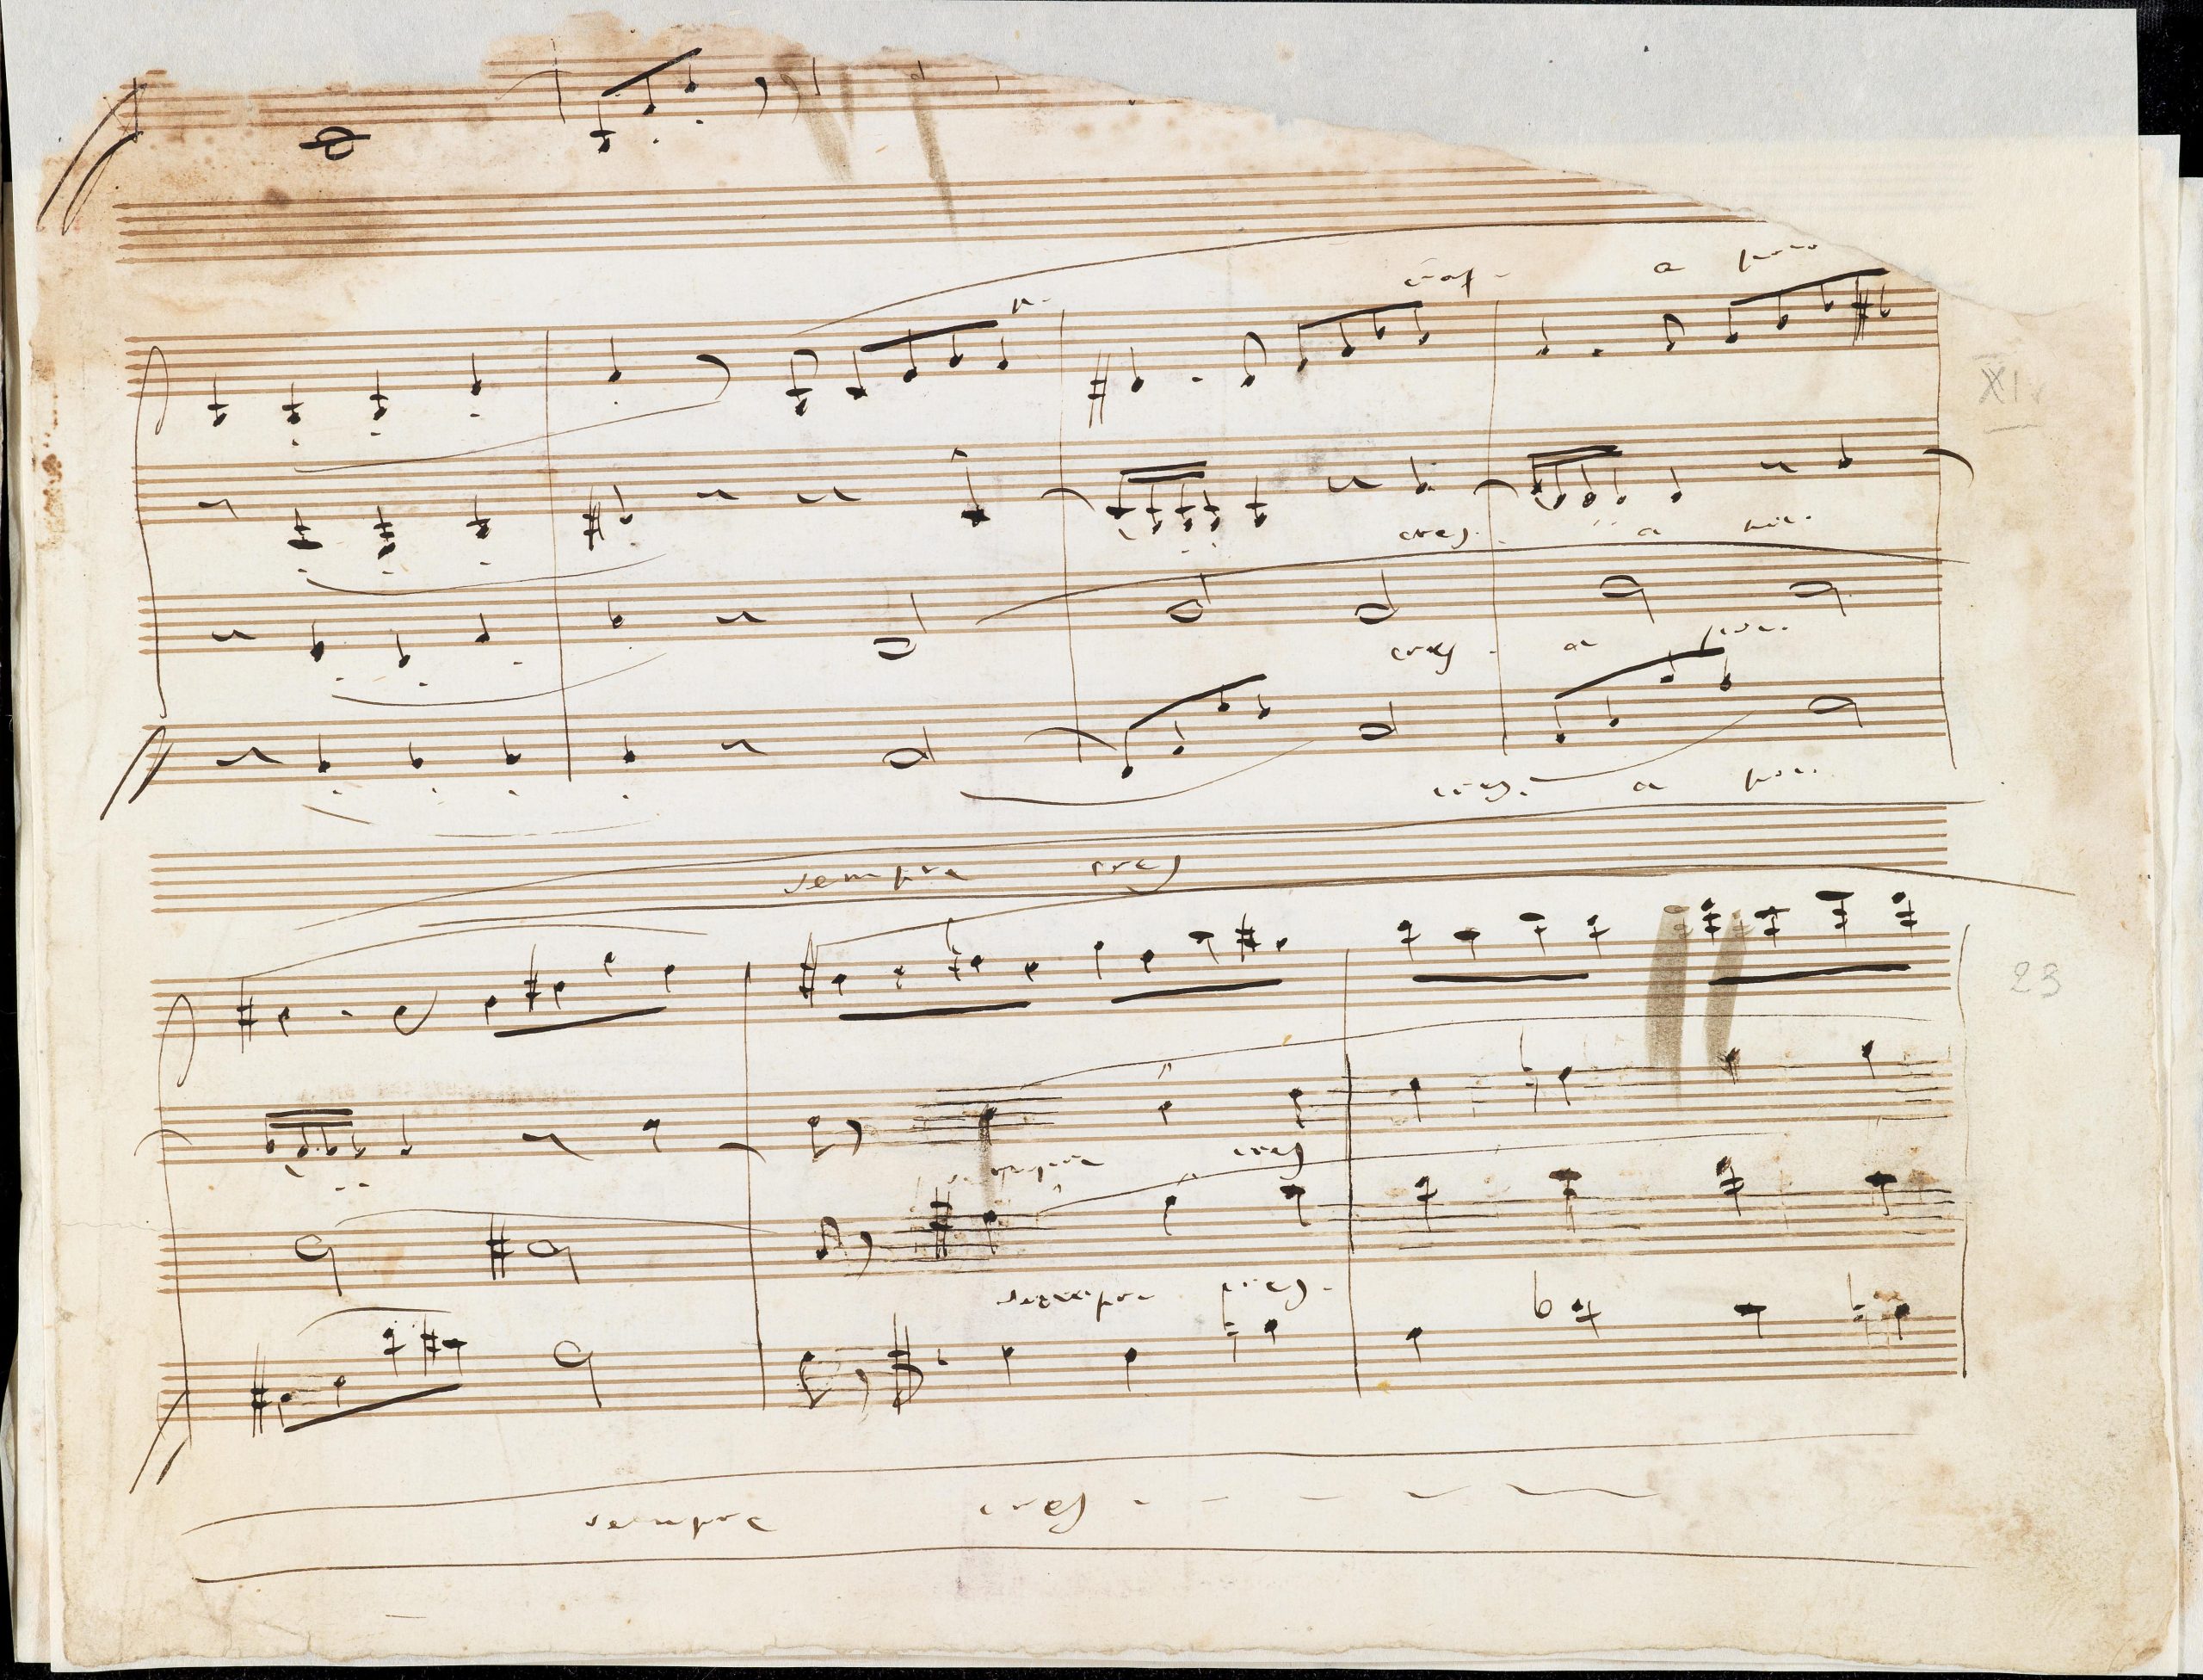 cresc a poco
XIV
cres. a poc.
cres a poc.
cres. a poc.
sempre cres
23
sempre cres
sempre cres.
sempre cres